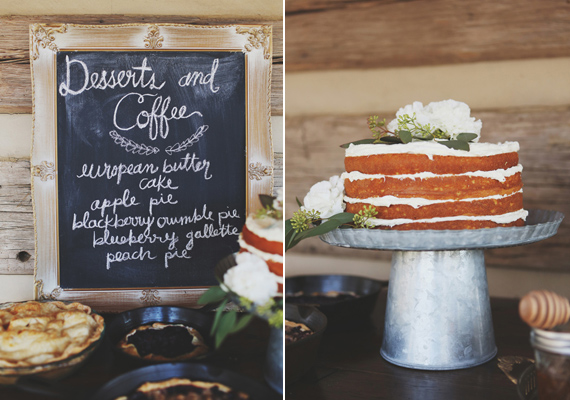 Desserts and
Coffee
european butter
cake
apple pie
blackberry crumble pie
blueberry gallette
peach pie